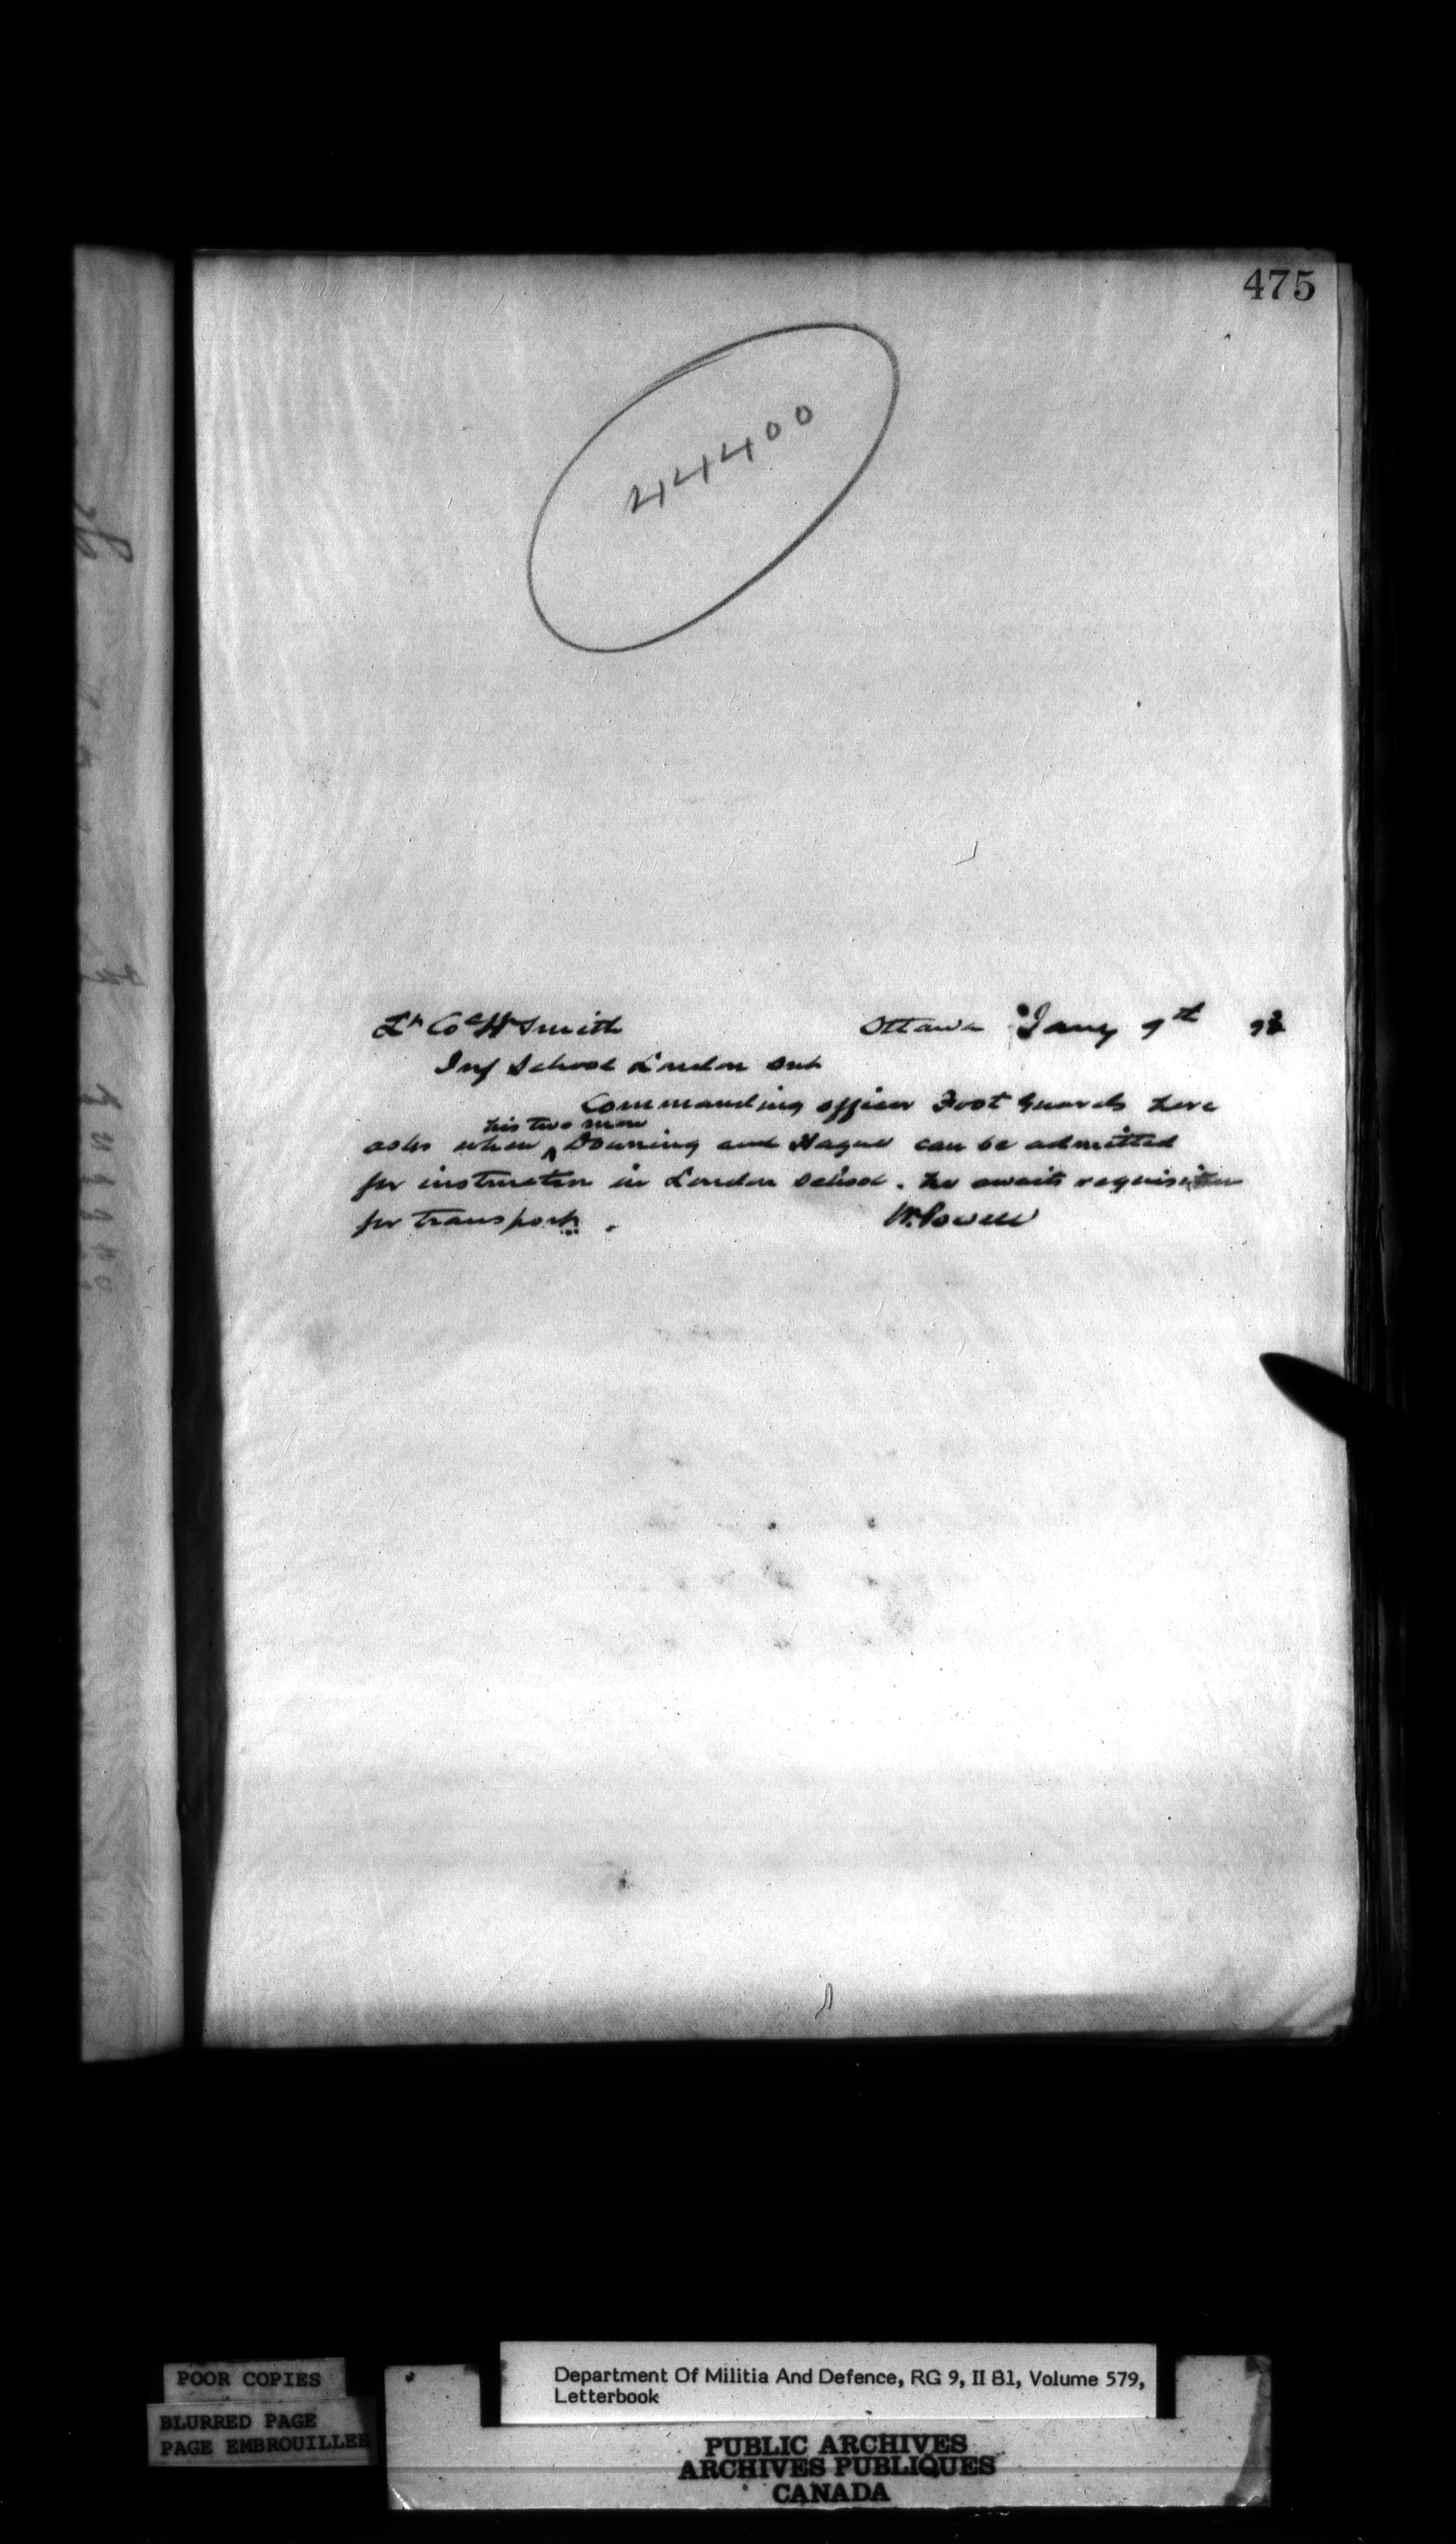 475
44400
Lt Col H Smith Ottawa Jany 9th 93
Inf School London Ont
Commanding officer Foot Guards here
his two men
asks when ^ Downing and Hague can be admitted
for instruction in London School. he awaits requisition
for transport. W. Powell
POOR COPIES
BLURRED PAGE
PAGE EMBROUILLEE
Department Of Militia And Defence, RG 9, II B1, Volume 579,
Letterbook
PUBLIC ARCHIVES
ARCHIVES PUBLIQUES
CANADA